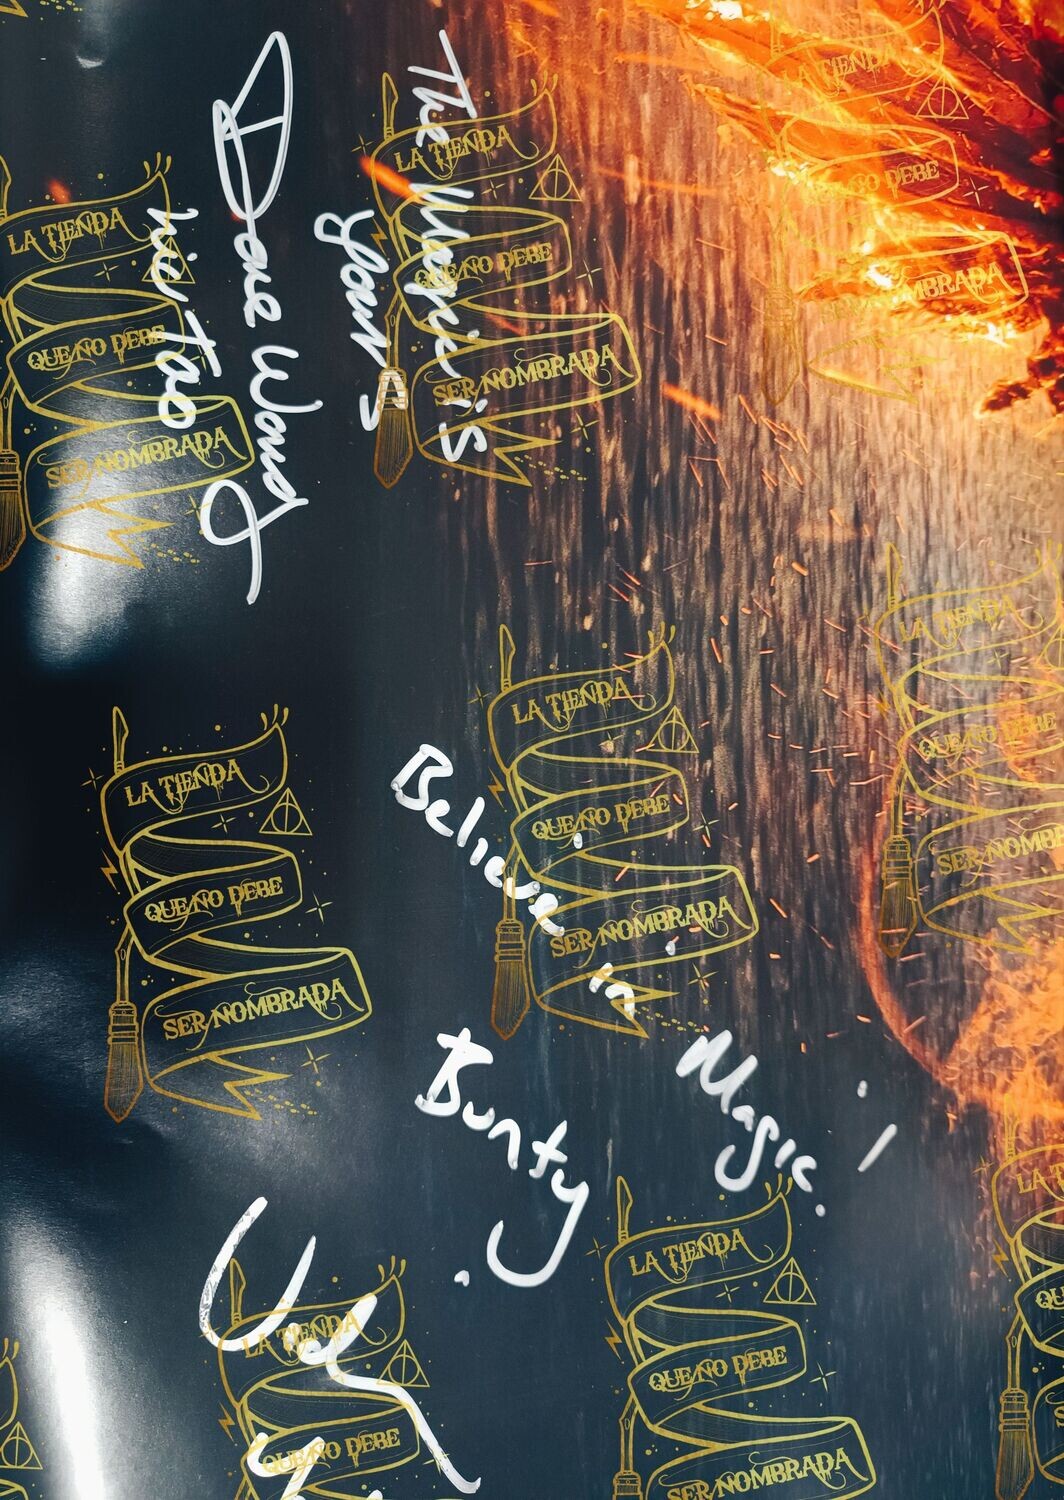 LA TIENDA
QUE NO DEBE
SER NOMBRADA
The Magic is
yours
Dave Wong
Liu Tao
LA TIENDA
QUE NO DEBE
SER NOMBRADA
LA TIENDA
QUE NO DEBE
SER NOMBRADA
LA TIENDA
QUE NO DEBE
SER NOMBRADA
LA TIENDA
QUE NO DEBE
SER NOMBRADA
LA TIENDA
QUE NO DEBE
SER NOMBRADA
Believe in Magic!
Bunty
LA TIENDA
QUE NO DEBE
SER NOMBRADA
LA TIENDA
QUE NO DEBE